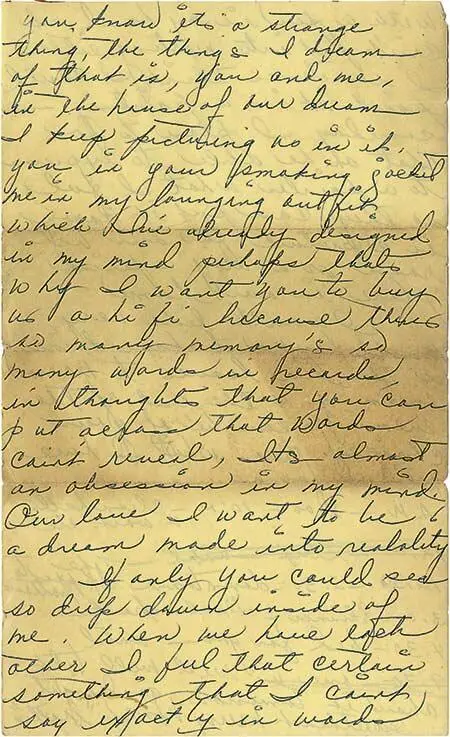 you know its a strange
thing, the things I dream
of that is, you and me,
in the house of our dream
I keep picturing us in it,
you in your smoking jacket
me in my lounging outfit,
which I've already designed
in my mind perhaps thats
why I want you to buy
us a hi fi because theres
so many memory's so
many words in records,
in thoughts that you can
put across that words
caint reveil, Its almost
an obsession in my mind.
Our love I want to be
a dream made into realality
If only you could see
so deep down inside of
me. When we have each
other I ful that certain
something that I caint
say exactly in words